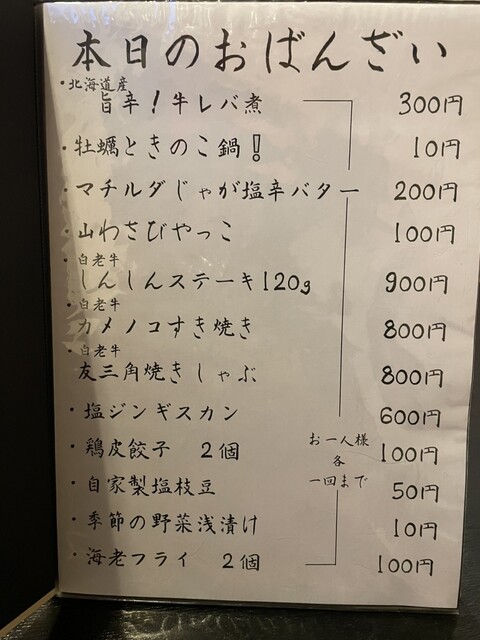 本日のおばんざい
・北海道産
旨辛！牛レバ煮 300円
・牡蠣ときのこ鍋！ 10円
・マチルダじゃが塩辛バター 200円
・山わさびやっこ 100円
・白老牛
しんしんステーキ120g 900円
・白老牛
カメノコすき焼き 800円
・白老牛
友三角焼きしゃぶ 800円
・塩ジンギスカン 600円
・鶏皮餃子 2個 100円
・自家製塩枝豆 50円
・季節の野菜浅漬け 10円
・海老フライ 2個 100円
お一人様
各
一回まで